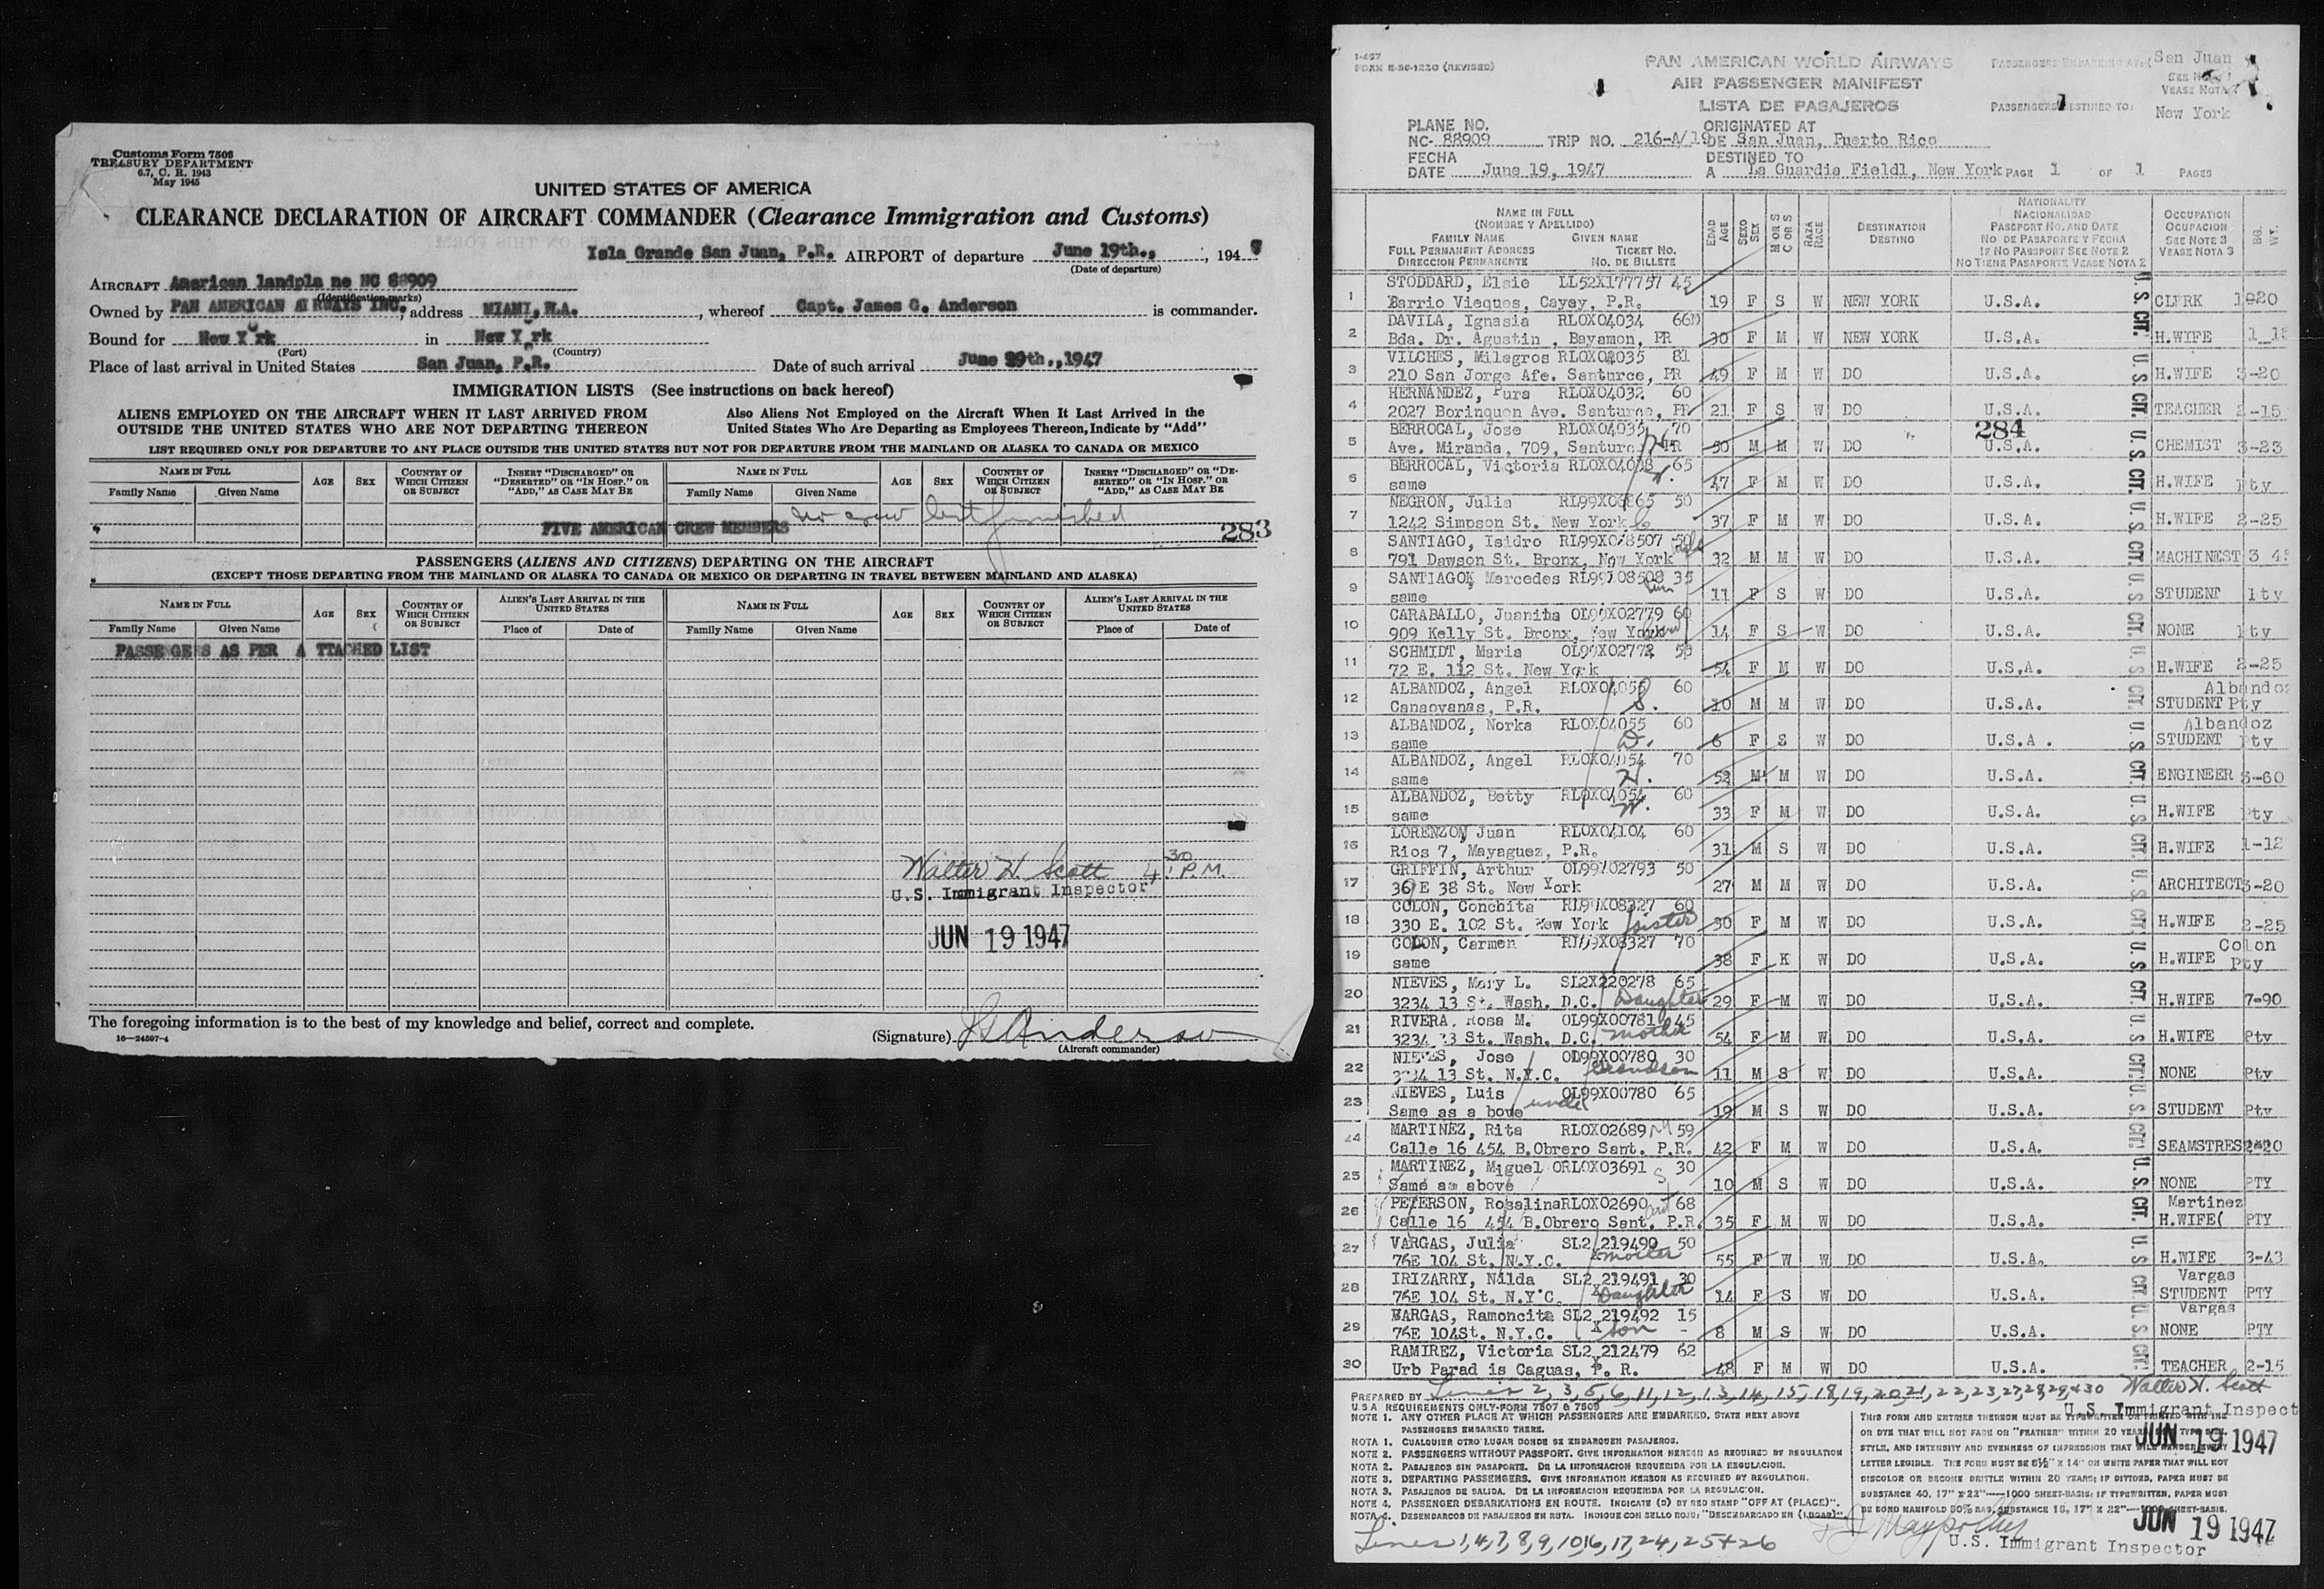 Customs Form 7506
TREASURY DEPARTMENT
6.7, C. R. 1943
May 1945
UNITED STATES OF AMERICA
CLEARANCE DECLARATION OF AIRCRAFT COMMANDER (Clearance Immigration and Customs)
Isla Grande San Juan, P.R. AIRPORT of departure June 19th., , 1947
(Date of departure)
AIRCRAFT American landpla ne NC 88909
(Identification marks)
Owned by PAN AMERICAN AIRWAYS INC. , address MIAMI, FLA. , whereof Capt. James G. Anderson is commander.
Bound for New York in New York
(Port) (Country)
Place of last arrival in United States San Juan, P.R. Date of such arrival June 19th.,1947
IMMIGRATION LISTS (See instructions on back hereof)
ALIENS EMPLOYED ON THE AIRCRAFT WHEN IT LAST ARRIVED FROM OUTSIDE THE UNITED STATES WHO ARE NOT DEPARTING THEREON
Also Aliens Not Employed on the Aircraft When It Last Arrived in the United States Who Are Departing as Employees Thereon, Indicate by "Add"
LIST REQUIRED ONLY FOR DEPARTURE TO ANY PLACE OUTSIDE THE UNITED STATES BUT NOT FOR DEPARTURE FROM THE MAINLAND OR ALASKA TO CANADA OR MEXICO
NAME IN FULL AGE SEX COUNTRY OF WHICH CITIZEN OR SUBJECT INSERT "DISCHARGED" OR "DESERTED" OR "IN HOSP." OR "ADD," AS CASE MAY BE NAME IN FULL AGE SEX COUNTRY OF WHICH CITIZEN OR SUBJECT INSERT "DISCHARGED" OR "DESERTED" OR "IN HOSP." OR "ADD," AS CASE MAY BE
Family Name Given Name Family Name Given Name
no crew list furnished
FIVE AMERICAN CREW MEMBERS 283
PASSENGERS (ALIENS AND CITIZENS) DEPARTING ON THE AIRCRAFT
(EXCEPT THOSE DEPARTING FROM THE MAINLAND OR ALASKA TO CANADA OR MEXICO OR DEPARTING IN TRAVEL BETWEEN MAINLAND AND ALASKA)
NAME IN FULL AGE SEX COUNTRY OF WHICH CITIZEN OR SUBJECT ALIEN'S LAST ARRIVAL IN THE UNITED STATES NAME IN FULL AGE SEX COUNTRY OF WHICH CITIZEN OR SUBJECT ALIEN'S LAST ARRIVAL IN THE UNITED STATES
Family Name Given Name Place of Date of Family Name Given Name Place of Date of
PASSENGERS AS PER A TTACHED LIST
Walter H. Scott 4:30 P.M.
U.S. Immigrant Inspector
JUN 19 1947
The foregoing information is to the best of my knowledge and belief, correct and complete.
16—24597-4
(Signature) J G Anderson
(Aircraft commander)
I-467
FORM E-SF-122C (REVISED)
PAN AMERICAN WORLD AIRWAYS
AIR PASSENGER MANIFEST
LISTA DE PASAJEROS
PASSENGERS EMBARKING AT: San Juan
SEE NOTE 1
VEASE NOTA 1
PASSENGERS DESTINED TO: New York
PLANE NO. NC- 88909 TRIP NO. 216-A/19 ORIGINATED AT DE San Juan, Puerto Rico
FECHA DATE June 19, 1947 DESTINED TO A La Guardia Fieldl, New York PAGE 1 OF 1 PAGES
NAME IN FULL (NOMBRE Y APELLIDO) FAMILY NAME GIVEN NAME FULL PERMANENT ADDRESS TICKET NO. DIRECCION PERMANENTE NO. DE BILLETE
EDAD AGE SEXO SEX M OR S C OR S RAZA RACE DESTINATION DESTINO
NATIONALITY NACIONALIDAD PASSPORT NO. AND DATE NO. DE PASAPORTE Y FECHA IF NO PASSPORT SEE NOTE 2 NO TIENE PASAPORTE VEASE NOTA 2
OCCUPATION OCUPACION SEE NOTE 3 VEASE NOTA 3 BG. WT.
STODDARD, Elsie LL52X177757 45
1 Barrio Vieques, Cayey, P.R. 19 F S W NEW YORK U.S.A. CLERK 1020
DAVILA, Ignasia RLOX04034 66
2 Bda. Dr. Agustin , Bayamon, PR 30 F M W NEW YORK U.S.A. H.WIFE
VILCHES, Milagros RLOX04035 81
3 210 San Jorge Afe. Santurce, PR 49 F M W DO U.S.A. H.WIFE 3-20
HERNANDEZ, Pura RLOX04032 60
4 2027 Borinquen Ave. Santurce, PR 21 F S W DO U.S.A. TEACHER 2-15
284
BERROCAL, Jose 70
5 Ave. Miranda, 709, Santurce PR 50 M M W DO U.S.A. CHEMIST 3-23
BERROCAL, Victoria 65
6 same 47 F M W DO U.S.A. H.WIFE Pty
NEGRON, Julia RL99X06865 50
7 1242 Simpson St. New York 37 F M W DO U.S.A. H.WIFE 2-25
SANTIAGO, Isidro RL99X08507 50
8 791 Dawson St. Bronx, New York 32 M M W DO U.S.A. MACHINEST 3 45
SANTIAGO, Mercedes 35
9 same 11 F S W DO U.S.A. STUDENT Pty
CARABALLO, Juanita OL99X02779 60
10 909 Kelly St. Bronx, New York 14 F S W DO U.S.A. NONE Pty
SCHMIDT, Maria OL99X02772 55
11 72 E. 112 St. New York 54 F M W DO U.S.A. H.WIFE 2-25
ALBANDOZ, Angel RLOX04055 60 Albandoz
12 Canaovanas, P.R. S. 10 M M W DO U.S.A. STUDENT Pty
ALBANDOZ, Norka RLOX04055 60 Albandoz
13 same D. 6 F S W DO U.S.A . STUDENT Pty
ALBANDOZ, Angel RLOX04054 70
14 same H. 52 M M W DO U.S.A. ENGINEER 3-60
ALBANDOZ, Betty RLOX04054 60
15 same W. 33 F M W DO U.S.A. H.WIFE Pty
LORENZON, Juan RLOX04104 60
16 Rios 7, Mayaguez, P.R. 31 M S W DO U.S.A. H.WIFE 1-12
GRIFFIN, Arthur OL99X02793 50
17 36 E 38 St. New York 27 M M W DO U.S.A. ARCHITECT 3-20
COLON, Conchita RL99X08327 60
18 330 E. 102 St. New York sister 30 F M W DO U.S.A. H.WIFE 2-25
COLON, Carmen RL99X08327 70 Colon
19 same 38 F K W DO U.S.A. H.WIFE Pty
NIEVES, Mary L. SL2X220278 65
20 3234 13 St. Wash. D.C. Daughter 29 F M W DO U.S.A. H.WIFE 7-90
RIVERA, Rosa M. OL99X00781 45
21 3234 13 St. Wash. D.C. mother 54 F M W DO U.S.A. H.WIFE Pty
NIEVES, Jose OL99X00780 30
22 3234 13 St. N.Y.C. Grandson 11 M S W DO U.S.A. NONE Pty
NIEVES, Luis OL99X00780 65
23 Same as a bove uncle 19 M S W DO U.S.A. STUDENT Pty
MARTINEZ, Rita RLOX02689 M 59
24 Calle 16 454 B.Obrero Sant. P.R. 42 F M W DO U.S.A. SEAMSTRES 2-20
MARTINEZ, Miguel ORLOX03691 S 30
25 Same as above 10 M S W DO U.S.A. NONE PTY
PETERSON, Rosalina RLOX02690 aunt 68 Martinez
26 Calle 16 454 B.Obrero Sant. P.R. 35 F M W DO U.S.A. H.WIFE( PTY
VARGAS, Julia SL2X219490 50
27 76E 104 St. N.Y.C. mother 55 F W W DO U.S.A. H.WIFE 3-43
IRIZARRY, Nilda SL2X219491 30 Vargas
28 76E 104 St. N.Y.C. Daughter 14 F S W DO U.S.A. STUDENT PTY
VARGAS, Ramoncita SL2X219492 15 Vargas
29 76E 104St. N.Y.C. son 8 M S W DO U.S.A. NONE PTY
RAMIREZ, Victoria SL2X212479 62
30 Urb Parad is Caguas, P. R. 48 F M W DO U.S.A. TEACHER 2-15
U.S. CIT. U.S. CIT. U.S. CIT.
PREPARED BY Lines 2, 3, 5, 6, 11, 12, 13, 14, 15, 18, 19, 20, 21, 22, 23, 27, 28, 29, & 30 Walter H. Scott
U.S. Immigrant Inspect
JUN 19 1947
U.S.A. REQUIREMENTS ONLY-FORM 7507 & 7508
NOTE 1. ANY OTHER PLACE AT WHICH PASSENGERS ARE EMBARKED, STATE NEXT ABOVE PASSENGERS EMBARKED THERE.
NOTA 1. CUALQUIER OTRO LUGAR DONDE SE EMBARQUEN PASAJEROS.
NOTE 2. PASSENGERS WITHOUT PASSPORT. GIVE INFORMATION HEREON AS REQUIRED BY REGULATION
NOTA 2. PASAJEROS SIN PASAPORTE. DE LA INFORMACION REQUERIDA POR LA REGULACION.
NOTE 3. DEPARTING PASSENGERS. GIVE INFORMATION HEREON AS REQUIRED BY REGULATION.
NOTA 3. PASAJEROS DE SALIDA. DE LA INFORMACION REQUERIDA POR LA REGULACION.
NOTE 4. PASSENGER DEBARKATIONS EN ROUTE. INDICATE (D) BY RED STAMP "OFF AT (PLACE)".
NOTA 4. DESEMBARCOS DE PASAJEROS EN RUTA. INDIQUE CON SELLO ROJO: "DESEMBARCADO EN (LUGAR)".
THIS FORM AND ENTRIES THEREON MUST BE TYPEWRITTEN OR PRINTED WITH INK
OR DYE THAT WILL NOT FADE OR "FEATHER" WITHIN 20 YEARS. TYPE SIZE,
STYLE, AND INTENSITY AND EVENNESS OF IMPRESSION THAT WILL RENDER EVERY
LETTER LEGIBLE. THE FORM MUST BE 8½" X 14" ON WHITE PAPER THAT WILL NOT
DISCOLOR OR BECOME BRITTLE WITHIN 20 YEARS; IF DIVIDED, PAPER MUST BE
SUBSTANCE 40, 17" X 22"——1000 SHEET-BASIS; IF TYPEWRITTEN, PAPER MUST
BE BOND MANIFOLD 50% RAG, SUBSTANCE 16, 17" X 22"—1000 SHEET-BASIS.
Lines 1, 4, 7, 8, 9, 10, 16, 17, 24, 25 & 26
JUN 19 1947
U.S. Immigrant Inspector